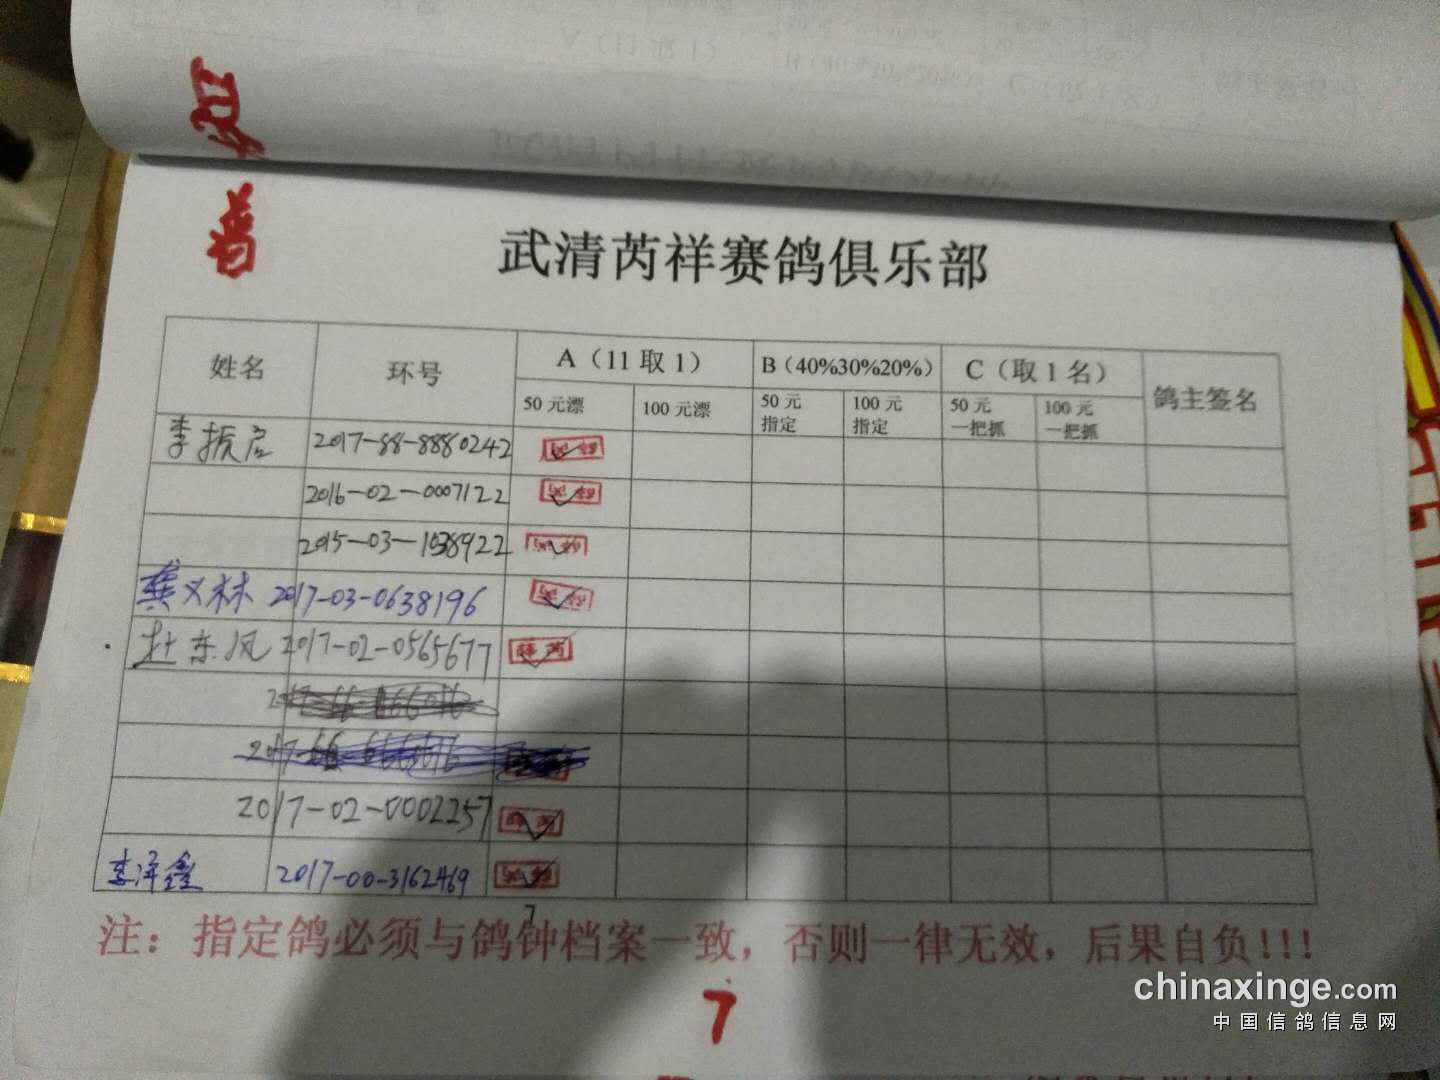 武清芮祥赛鸽俱乐部
姓名 环号 A（11取1） B（40%30%20%） C（取1名） 鸽主签名
50元漂 100元漂 50元指定 100元指定 50元一把抓 100元一把抓
李振启 2017-88-8880242
2016-02-0007122
2015-03-1038922
龚义林 2017-03-0638196
杜东风 2017-02-0565677
2017-02-0002257
李泽鑫 2017-00-3162469
7
注：指定鸽必须与鸽钟档案一致，否则一律无效，后果自负!!!
7
chinaxinge.com
中国信鸽信息网